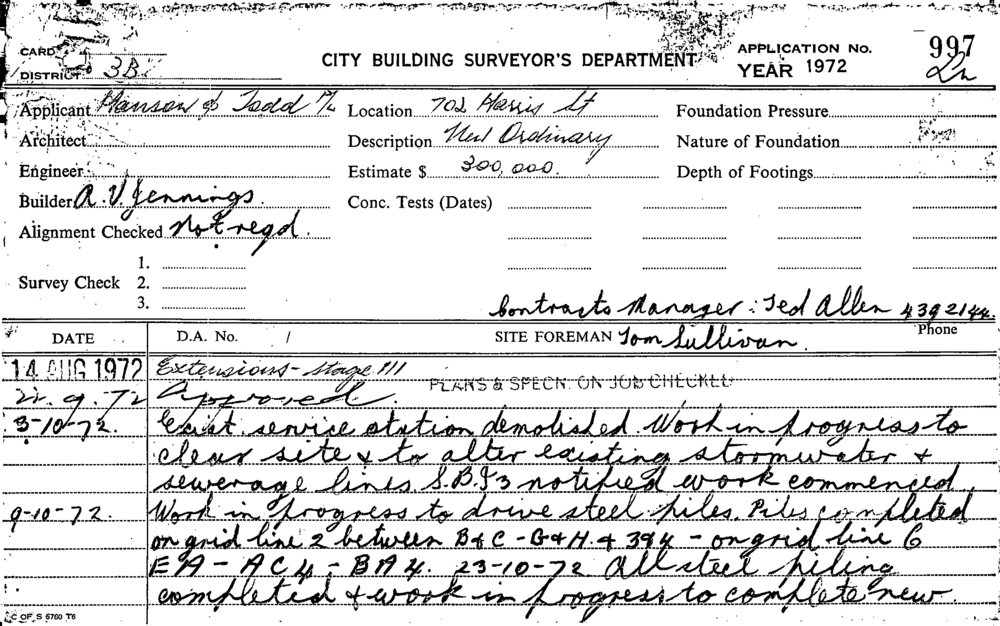 CARD
DISTRICT 3B
CITY BUILDING SURVEYOR'S DEPARTMENT
APPLICATION No. 997
YEAR 1972
Applicant Hanson & Todd P/L
Location 702 Harris St
Foundation Pressure
Architect
Description New Ordinary
Nature of Foundation
Engineer
Estimate $ 300,000.
Depth of Footings
Builder A. V. Jennings.
Conc. Tests (Dates)
Alignment Checked Not reqd.
Survey Check 1.
2.
3.
Contracts Manager: Ted Allen 4392144.
DATE D.A. No. / SITE FOREMAN Tom Sullivan. Phone
14 AUG 1972 Extensions - Stage III
PLANS & SPECN. ON JOB CHECKED
9.72 Approved.
3-10-72. Exist. service station demolished. Work in progress to
clear site & to alter existing stormwater &
sewerage lines. notified work commenced.
9-10-72. Work in progress to drive steel piles. Piles completed
on grid line 2 between B & C - G & H. & 3&4 - on grid line 6
EA - AC4 - BA4. 23-10-72 All steel piling
completed & work in progress to complete new.
C OF S 6760 T6